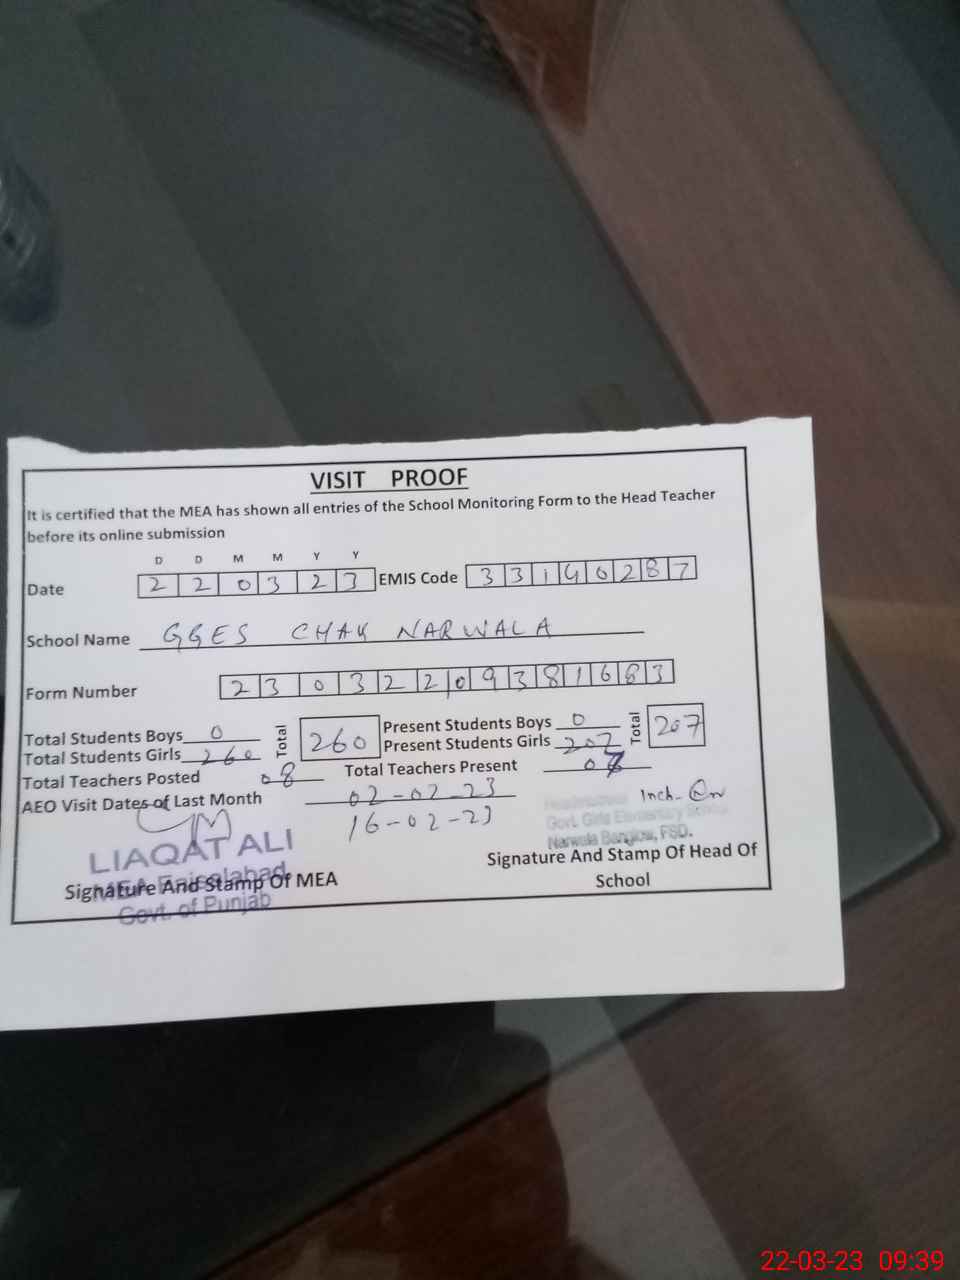 VISIT PROOF
It is certified that the MEA has shown all entries of the School Monitoring Form to the Head Teacher
before its online submission
D D M M Y Y
Date 2 2 0 3 2 3 EMIS Code 3 3 1 4 0 2 8 7
School Name GGES CHAK NARWALA
Form Number 2 3 0 3 2 2 0 9 3 8 1 6 8 3
Total Students Boys 0 Total 260 Present Students Boys 0 Total 207
Total Students Girls 260 Present Students Girls 207
Total Teachers Posted 08 Total Teachers Present
AEO Visit Dates of Last Month 02-02-23
16-02-23
Inch-
Govt. Girls Elementary School
Narwala Bangow, FSD.
LIAQAT ALI
MEA Faisalabad
Govt. of Punjab
Signature And Stamp Of MEA
Signature And Stamp Of Head Of
School
22-03-23 09:39